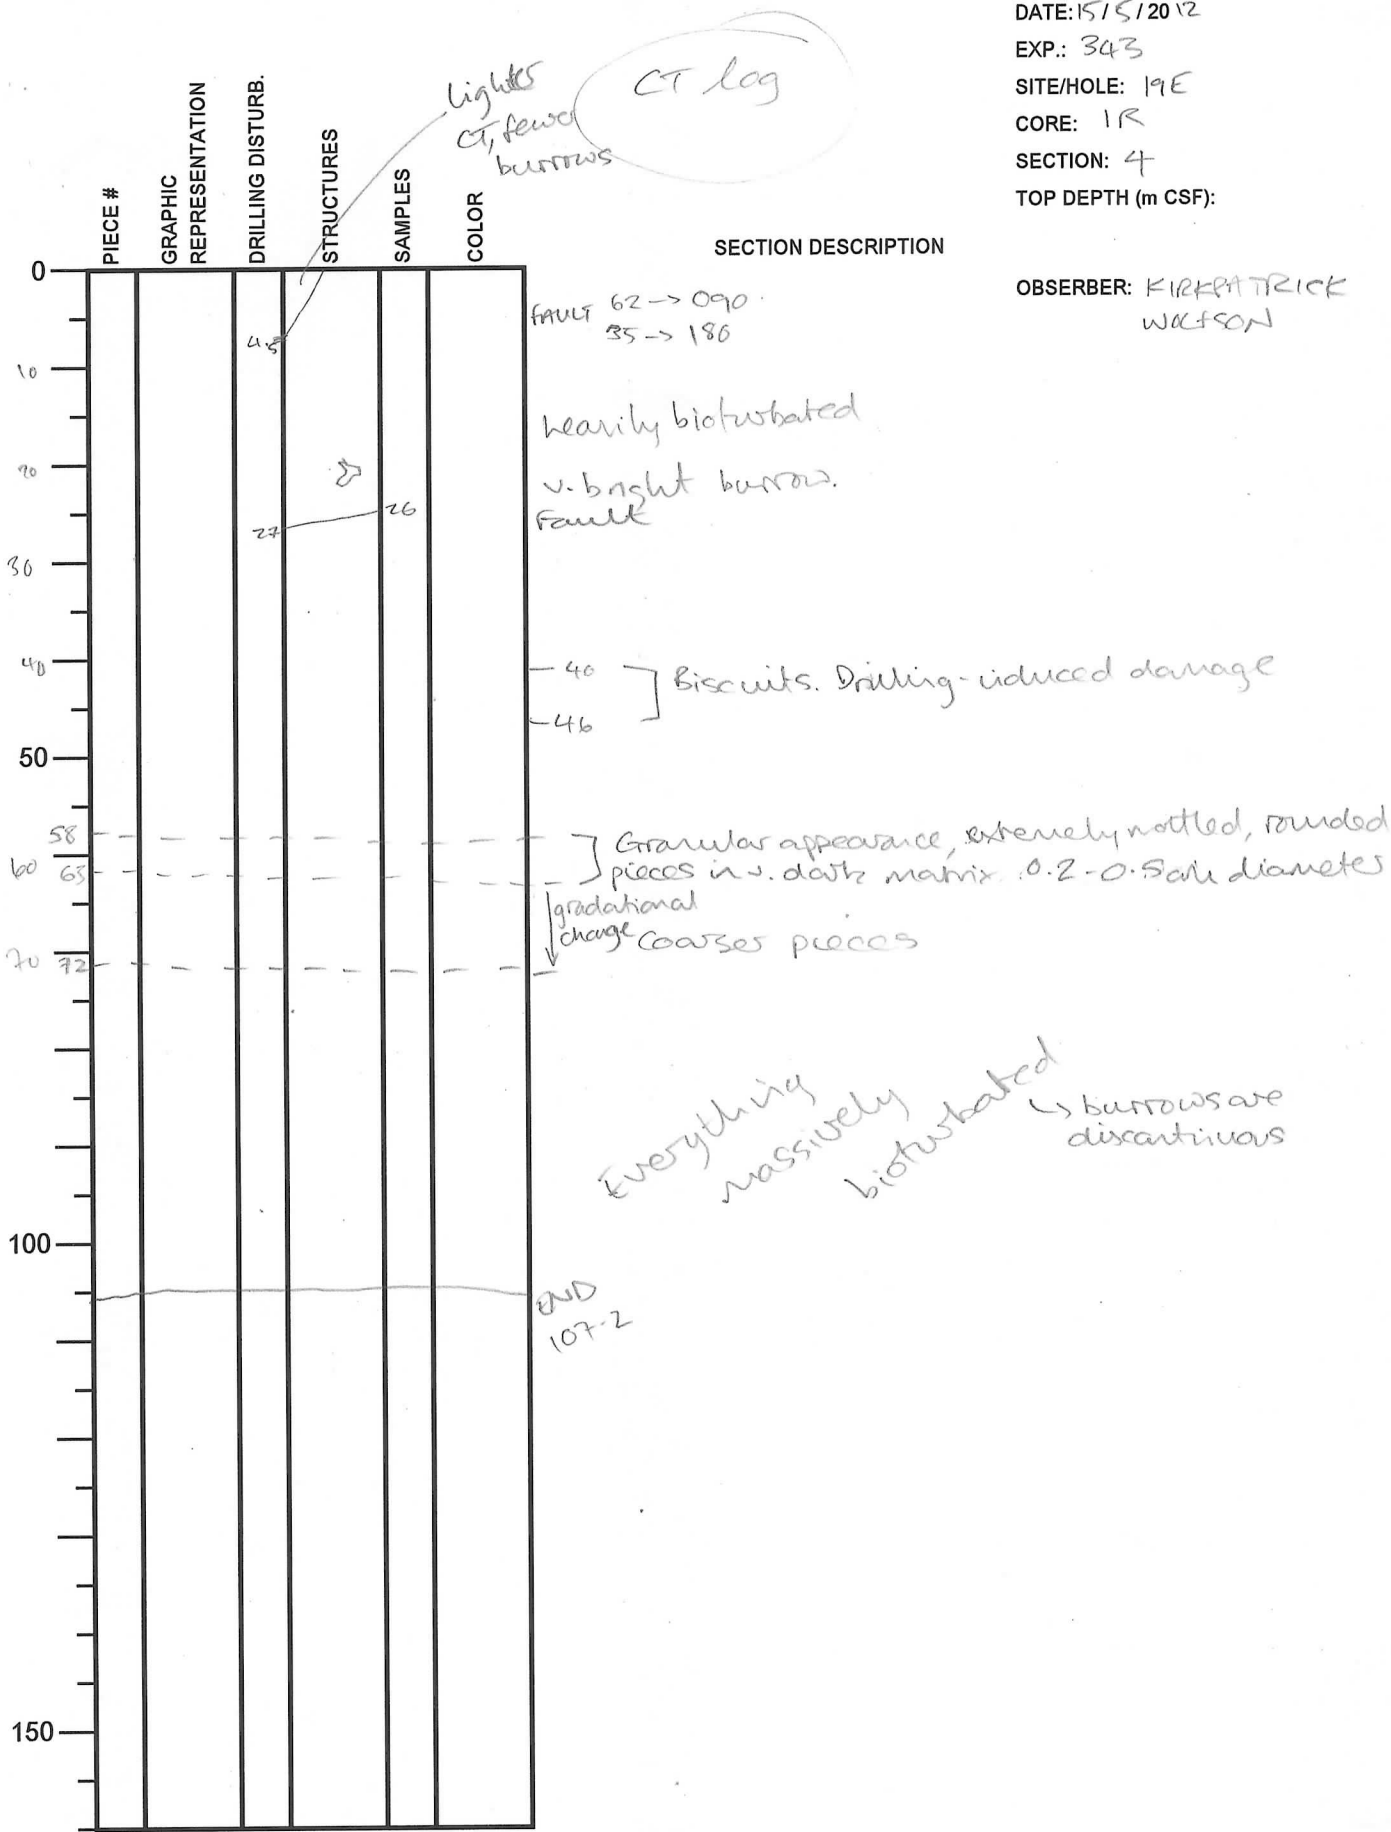 DATE: 15/5/2012
EXP.: 343
SITE/HOLE: 19E
CORE: 1R
SECTION: 4
TOP DEPTH (m CSF):
OBSERBER: KIRKPATRICK
WOLFSON
CT log
lighter
CT, fewer
burrows
PIECE #
GRAPHIC
REPRESENTATION
DRILLING DISTURB.
STRUCTURES
SAMPLES
COLOR
SECTION DESCRIPTION
0
FAULT 62 -> 090
35 -> 180
4.5
10
heavily bioturbated
20
v. bright burrow.
27 26 Fault
30
40 40
Biscuits. Drilling-induced damage
46
50
58
Granular appearance, extremely mottled, rounded
60 63 pieces in v. dark matrix. 0.2-0.5cm diameter
gradational
change coarser pieces
70 72
Everything
massively
bioturbated
↳ burrows are
discontinuous
100
END
107.2
150